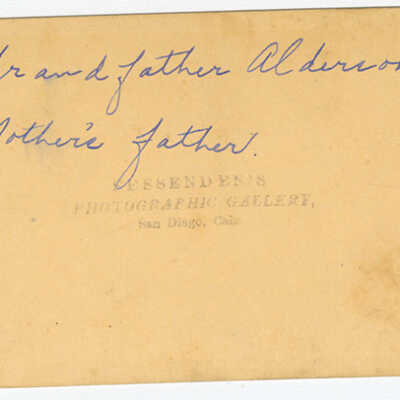 Grandfather Alderson
Mother's father.
FESSENDEN'S
PHOTOGRAPHIC GALLERY,
San Diago, Cala.